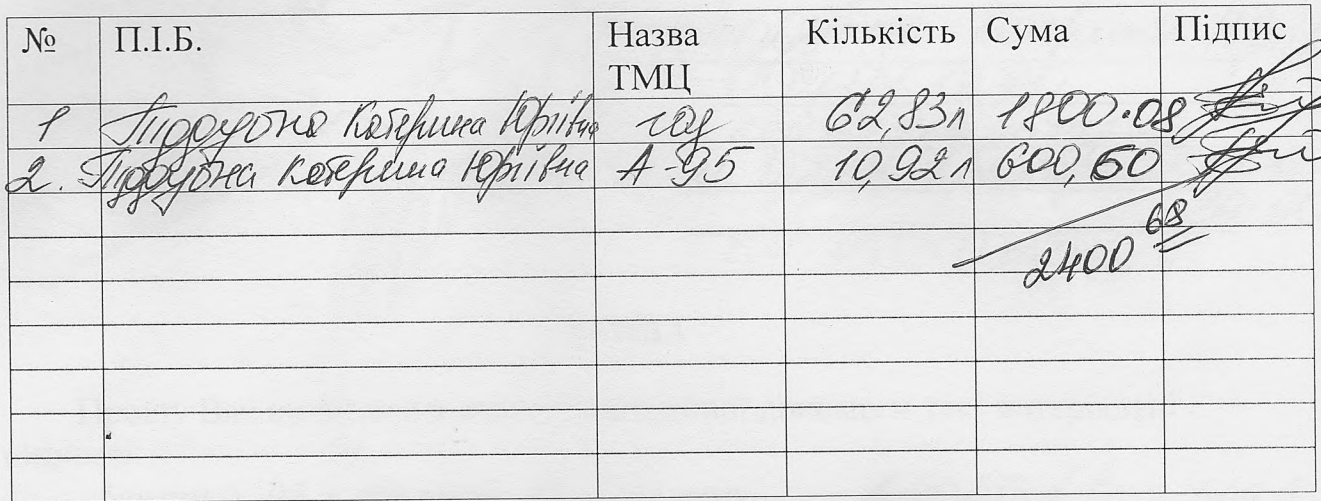 № П.І.Б. Назва ТМЦ Кількість Сума Підпис
1 Катерина Юріївна газ 62,83л 1800.08
2. Катерина Юріївна А-95 10,92л 600,60
2400 68